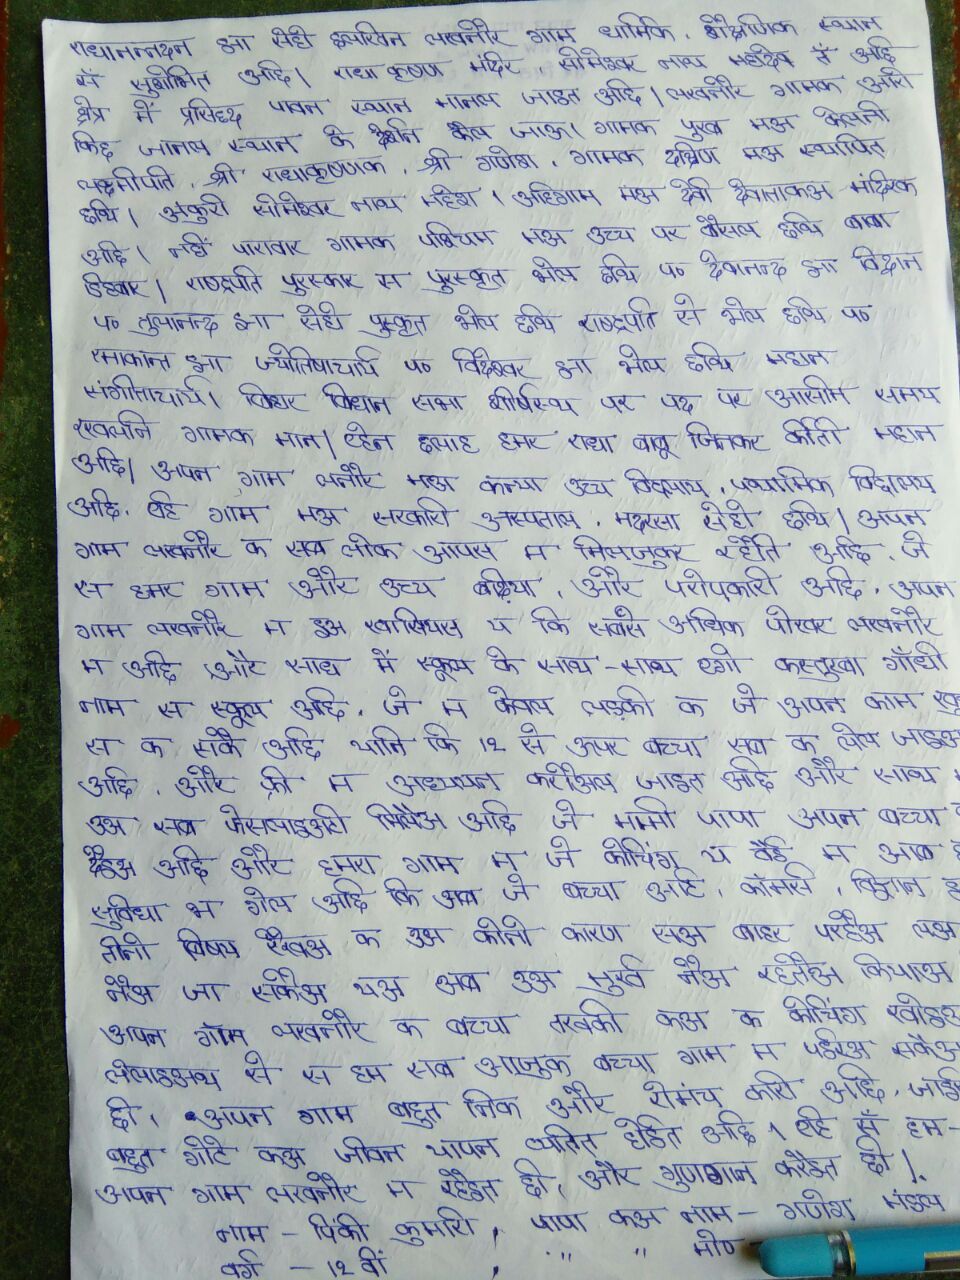 राधानन्दन झा सेहो छलखिन लखनौर गाम धार्मिक, शैक्षणिक स्थान
सँ सुशोभित अछि। राधा कृष्ण मंदिर, सोमेश्वर नाथ महादेव तँ अहि
क्षेत्र में प्रसिद्ध पावन स्थान मानल जाइत अछि। लखनौर गामक आरो
किछ जानल स्थान के दर्शन कैल जाऊ। गामक पुरब मअ
लक्ष्मीपति, श्री राधाकृष्णक, श्री गणेश, गामक दक्षिण मअ स्थापित
छथि। अंकुरी सोमेश्वर नाथ महेश। अहिगाम मअ देवी देवाताकअ मंदिरक
अछि। नहि पारावार गामक पश्चिम मअ उच्च पर बैसल छथि बाबा
डिहवार। राष्ट्रपति पुरस्कार स पुरस्कृत भेल छथि प० देवानन्द झा विद्वान
प० तुलानन्द झा सेहो पुस्कृत भेल छथि राष्ट्रपति से भेल छथि प०
रमाकान्त झा ज्योतिषाचार्य प० विदेश्वर झा भेल छथि महान
संगीताचार्य। बिहार विधान सभा शीर्षस्थ पर पद पर आसीम समय
रखलनि गामक मान। एहेन छलाह हमर राधा बाबू जिनकर कीर्ती महान
अछि। अपन गाम लनौर मअ कन्या उच्च विद्यालय, पथ्यामिक विद्यालय
अछि, एहि गाम मअ सरकारी अस्पताल, मदरसा सेहो छथि। अपन
गाम लखनौर क सब लोक आपस म मिलजुकर रहैति अछि, जे
स हमर गाम और उच्च बढ़िया, और परोपकारी अछि, अपन
गाम लखनौर म इअ खासियस य कि सबसे अधिक पोखर लखनौर
म अछि और साथ में स्कूल के साथ-साथ एगो कस्तुरबा गाँधी
नाम स स्कूल अछि, जे म केवल लड़की क जे अपन काम
स क सकै अछि यानि कि 12 से ऊपर बच्चा सब क लेल जाइअ
अछि, और फ्री म अध्ययन करौअल जाइत अछि और साथ
उअ सब फेसलाइअटी मिलैअ अछि जे मम्मी पापा अपन बच्चा
दैइअ अछि और हमरा गाम म जे कोचिंग य वैई म आब
सुविधा भ गेल अछि कि अब जे बच्चा आर्ट, कॉमर्स, विज्ञान
तीनो विषय रैखअ क उअ कोनो कारण सअ बाहर परहैअ लअ
नैअ जा सकैअ यअ अब उअ मुर्ख नैअ रहतैअ कियाअ
अपन गॉम लखनौर क बच्चा सबकी कअ क कोचिंग खोइअ
लेलाइअथ से स हम सब आजुक बच्चा गाम म पढैअ सकैअ
छी, अपन गाम बहुत निक और रोमंच कारी अछि, जाहि
बहुत गोटे कअ जीवन यापन व्यतित होइत अछि। एहि सँ हम-
अपन गाम लखनौर म रहैइत छी, और गुणगान करैइत छी।
नाम – पिंकी कुमारी, पापा कअ नाम – गणेश मंडल
वर्ग – 12 वीं, ,, ,, मो०